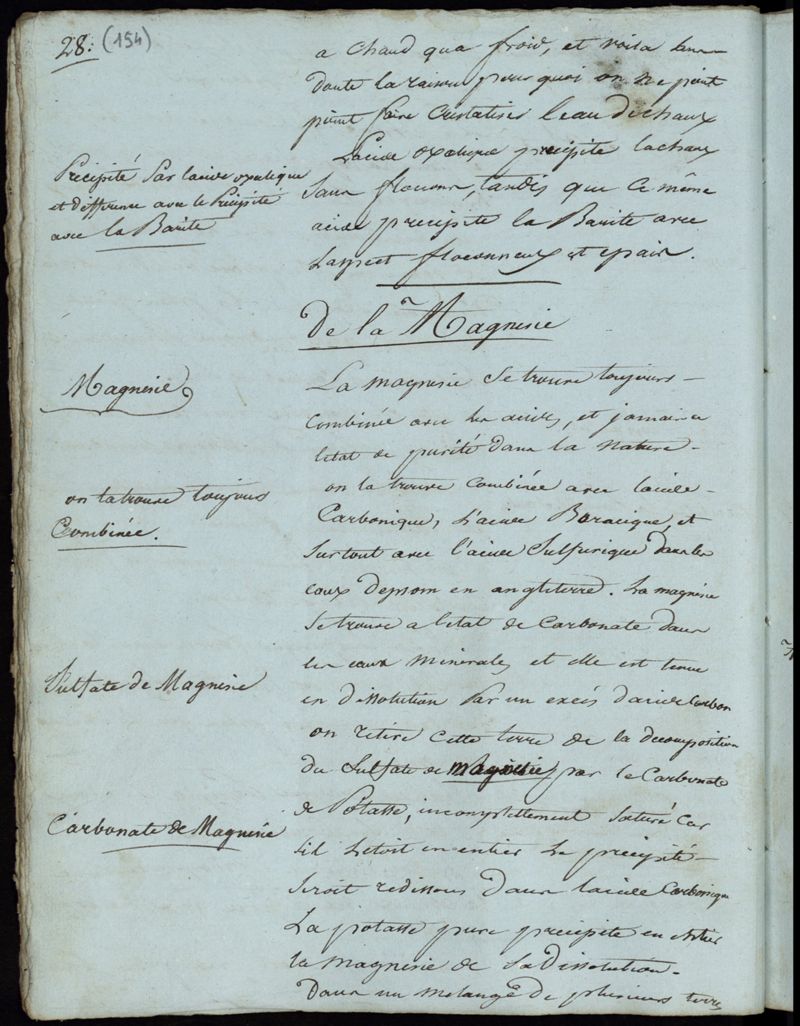 28: (154)
a chaud qua froid, et voila sans
doute la raison pourquoi on ne peut
point faire cristaliser leau de chaux
Lacide oxalique precipite la chaux
Sans flocons, tandis que ce même
acide precipite la Barite avec
Laspect floconneux et epais.
Précipité Par lacide oxalique
et difference avec le Précipité
avec la Barite
De la Magnesie
Magnesie
La magnesie Se trouve toujours
Combinée avec les acides, et jamais a
létat de pureté dans la nature
on la trouve combinée avec lacide
Carbonique, L'acide Boracique, et
Surtout avec l'acide Sulfurique dans les
eaux depsom en angleterre. La magnesie
Se trouve a letat de Carbonate dans
les eaux minerales et elle est tenue
en dissolution Par un excès dacide Carbon
on retire cette terre de la decomposition
du Sulfate de magnesie par le Carbonate
de Potasse, incomplettement Saturé Car
Sil Letoit en entier Le precipité
Seroit redissous dans lacide Carbonique
La potasse pure precipite en entier
la magnesie de Sa dissolution.
Dans un melange de plusieurs terres
on la trouve toujours
Combinée.
Sulfate de Magnesie
Carbonate de Magnesie